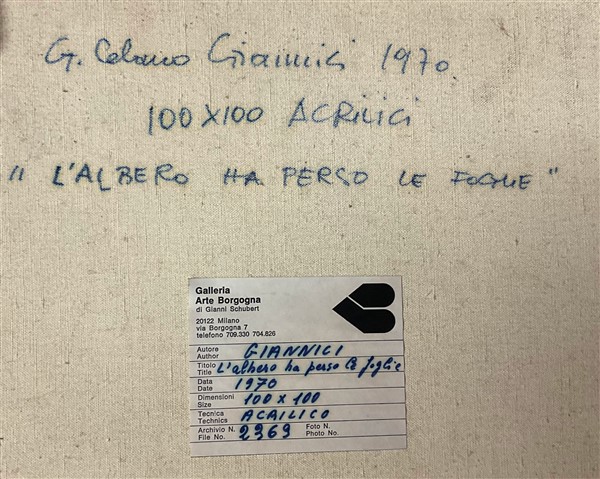 G. Celano Giannici 1970.
100X100 ACRILICI
"L'ALBERO HA PERSO LE FOGLIE"
Galleria
Arte Borgogna
di Gianni Schubert
20122 Milano
via Borgogna 7
telefono 709.330 704.826
Autore
Author GIANNICI
Titolo
Title L'albero ha perso le foglie
Data
Date 1970
Dimensioni
Size 100 x 100
Tecnica
Technics ACRILICO
Archivio N. Foto N.
File No. 2369 Photo No.